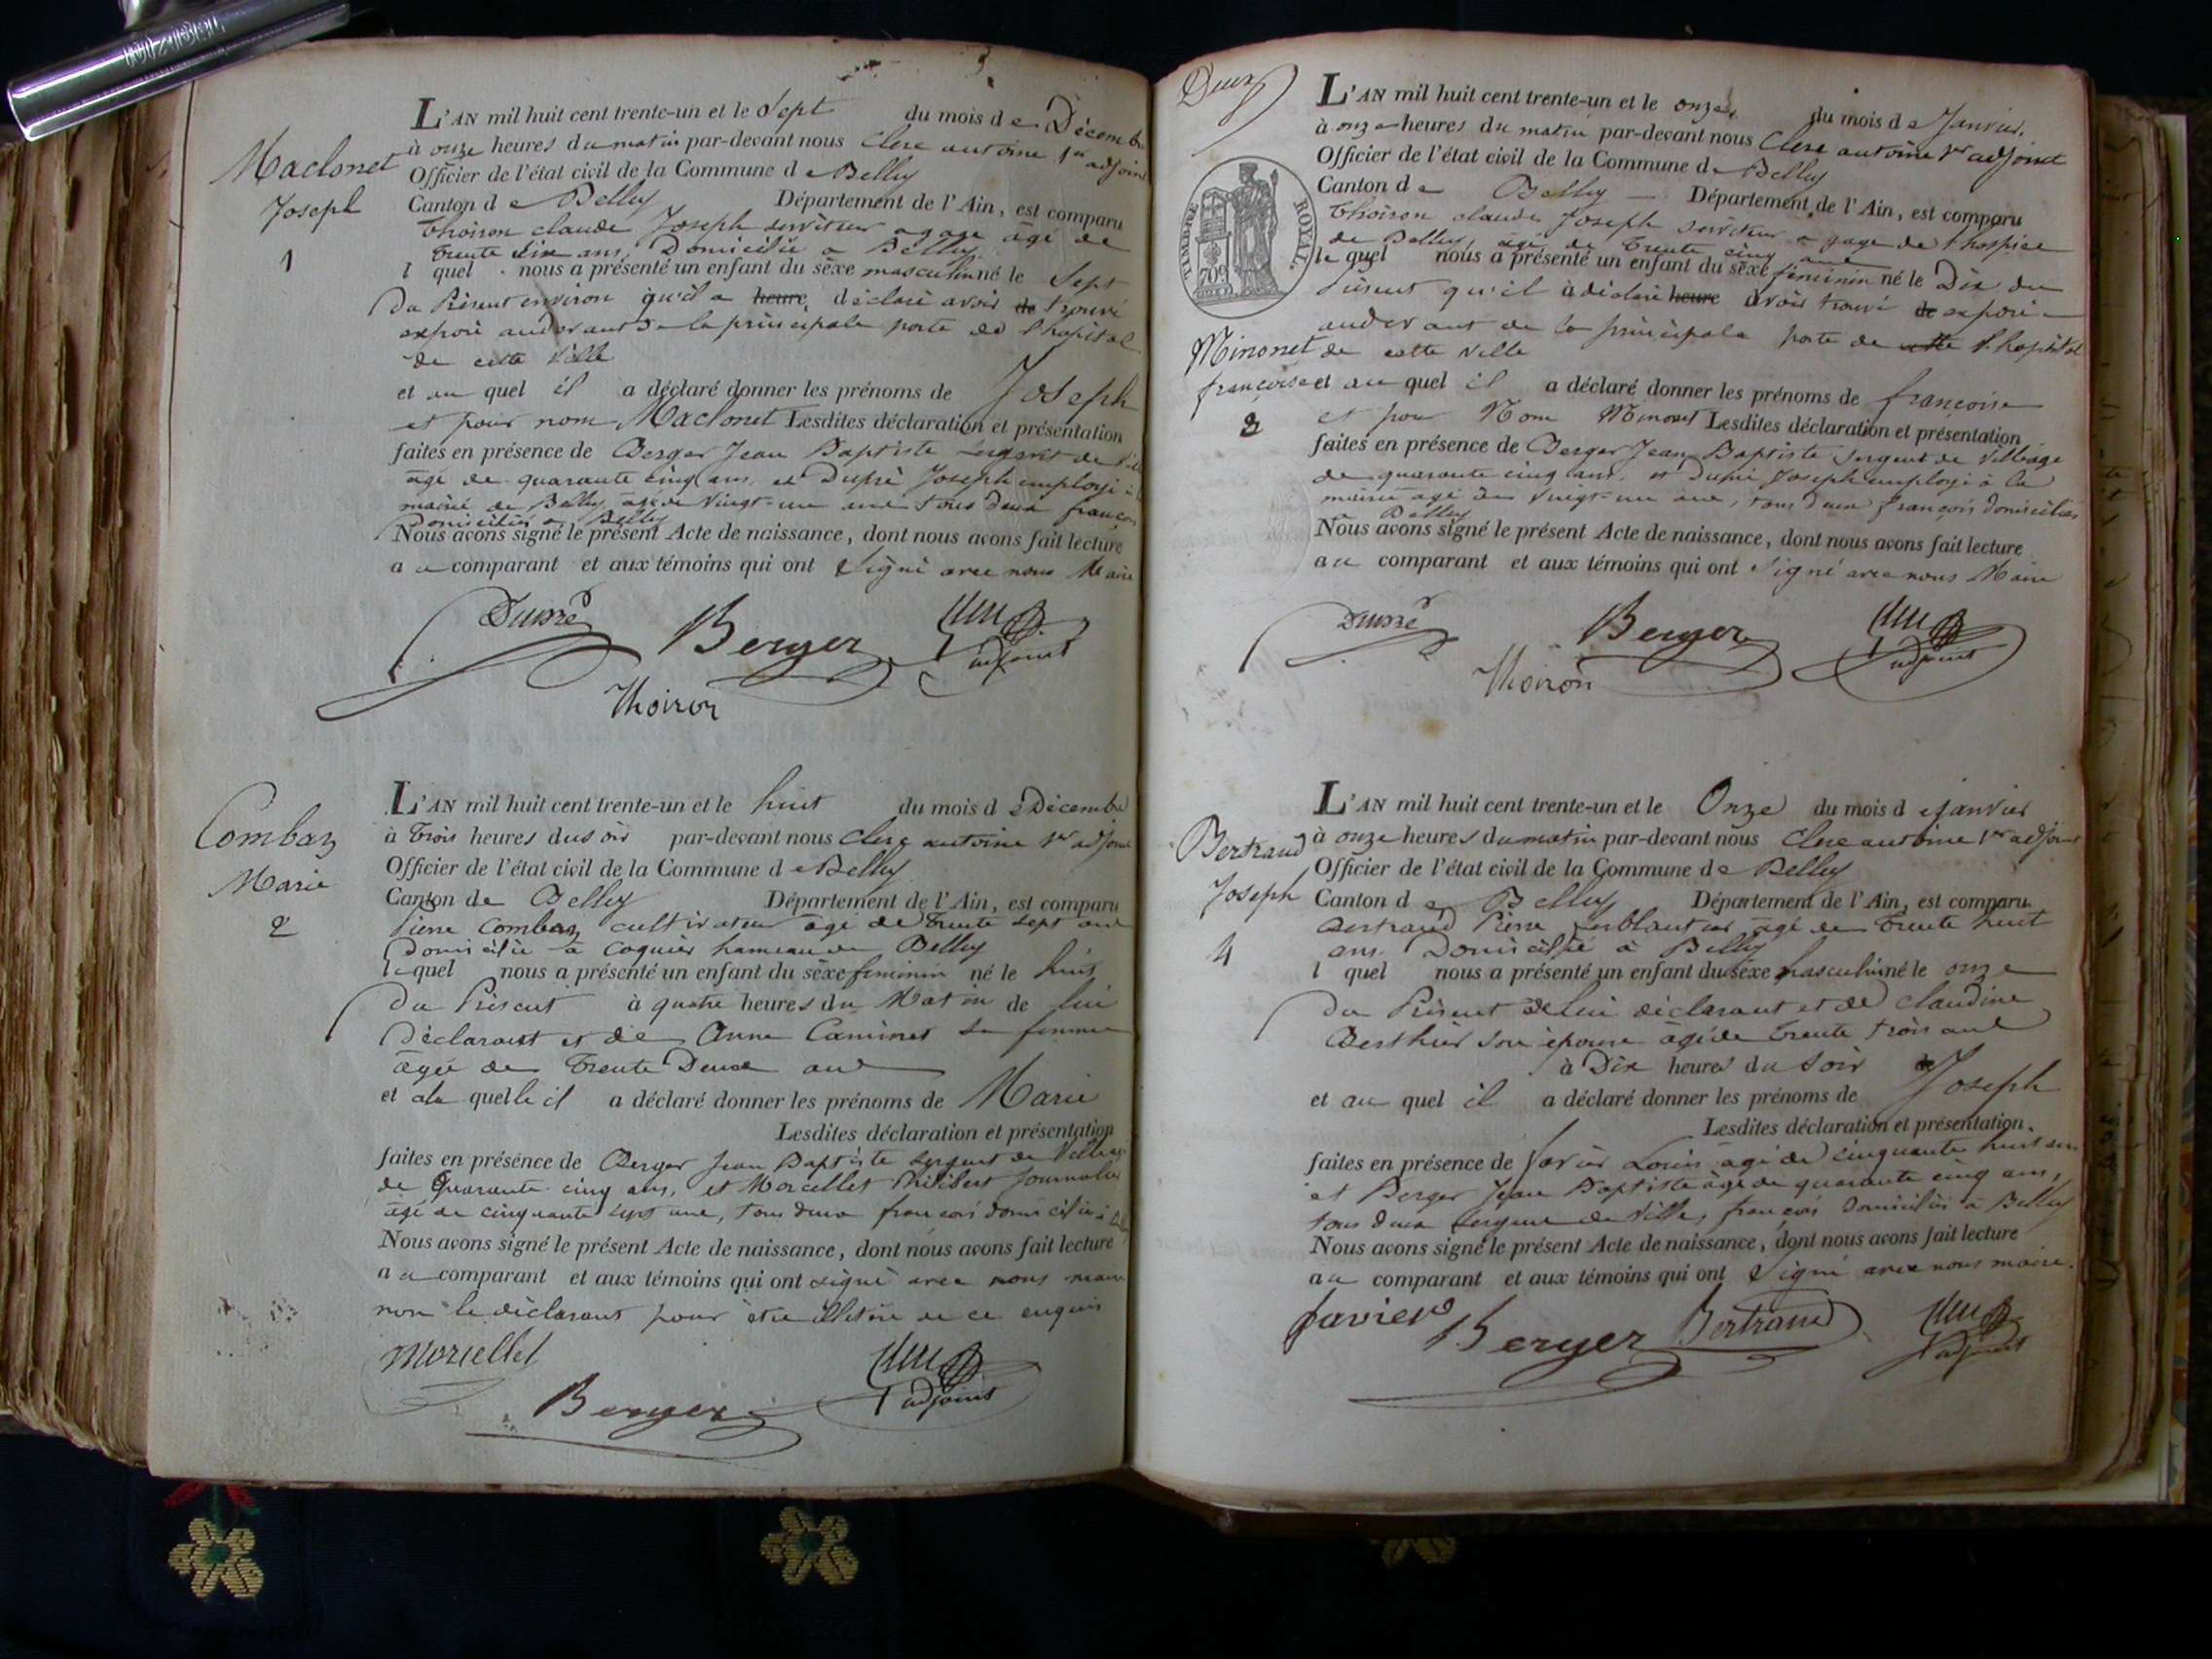 Maclonet
Joseph
1
L'AN mil huit cent trente-un et le Sept du mois de Décembre
à onze heures du matin par-devant nous Clerc antoine 1er adjoint
Officier de l'état civil de la Commune de Belley
Canton de Belley Département de l'Ain, est comparu
Thoiron claude Joseph serviteur a gage âgé de
trente six ans, Domicilié a Belley
lequel nous a présenté un enfant du sèxe masculin né le Sept
Du Présent environ qu'il a heure déclaré avoir de trouvé
exposé audevant de la principale porte de l'hopital
de cette ville
et au quel il a déclaré donner les prénoms de Joseph
et pour nom Maclonet Lesdites déclaration et présentation
faites en présence de Berger Jean Baptiste sergent de Ville
âgé de quarante cinq ans, et Dupré Joseph employé à la
mairie de Belley âgé de Vingt-un ans tous deux français
Domiciliés a Belley
Nous avons signé le présent Acte de naissance, dont nous avons fait lecture
au comparant et aux témoins qui ont signé avec nous Maire
Dupré Berger Clerc
1er adjoint
Thoiron
Combaz
Marie
2
L'AN mil huit cent trente-un et le huit du mois de Décembre
à Trois heures du soir par-devant nous Clerc antoine 1er adjoint
Officier de l'état civil de la Commune de Belley
Canton de Belley Département de l'Ain, est comparu
Pierre Combaz cultivateur âgé de trente sept ans
Domicilié à Coquier hameau de Belley
lequel nous a présenté un enfant du sèxe féminin né le huit
Du Présent à quatre heures du Matin de lui
Déclarant et de Anne Caminet sa femme
âgée de Trente Deux ans
et a la quelle il a déclaré donner les prénoms de Marie
Lesdites déclaration et présentation
faites en présence de Berger Jean Baptiste sergent de Ville âgé
de Quarante cinq ans, et Morcellet Philibert Journalier
âgé de cinquante sept ans, tous deux français domiciliés à Belley
Nous avons signé le présent Acte de naissance, dont nous avons fait lecture
au comparant et aux témoins qui ont signé avec nous maire
non le déclarant pour être illetiré de ce enquis
Morcellet
Clerc
Berger 1er adjoint
Deux
TIMBRE ROYAL
709
Minonet
françoise
3
L'AN mil huit cent trente-un et le onze du mois de Janvier
à onze heures du matin par-devant nous Clerc antoine 1er adjoint
Officier de l'état civil de la Commune de Belley
Canton de Belley Département de l'Ain, est comparu
Thoiron claude Joseph serviteur a gage de l'hospice
de Belley, âgé de trente cinq ans
lequel nous a présenté un enfant du sèxe féminin né le Dix du
présent qu'il à déclaré heure avoir trouvé de exposé
audevant de la principale porte de cette l'hopital
de cette ville
et au quel il a déclaré donner les prénoms de françoise
et pour Nom Minonet Lesdites déclaration et présentation
faites en présence de Berger Jean Baptiste sergent de Ville âgé
de quarante cinq ans, et Dupré Joseph employé à la
mairie âgé de Vingt-un ans, tous deux français domiciliés
a Belley
Nous avons signé le présent Acte de naissance, dont nous avons fait lecture
au comparant et aux témoins qui ont signé avec nous Maire
Dupré Berger Clerc
1er adjoint
Thoiron
Bertrand
Joseph
4
L'AN mil huit cent trente-un et le Onze du mois de janvier
à onze heures du matin par-devant nous Clerc antoine 1er adjoint
Officier de l'état civil de la Commune de Belley
Canton de Belley Département de l'Ain, est comparu
Bertrand Pierre ferblantier âgé de trente huit
ans Domicilié à Belley
lquel nous a présenté un enfant du sèxe masculin né le onze
Du Présent de lui déclarant et de Claudine
Berthier son épouse âgée de trente trois ans
à Dix heures du soir de
et au quel il a déclaré donner les prénoms de Joseph
Lesdites déclaration et présentation
faites en présence de favier Louis âgé de cinquante huit ans
et Berger Jean Baptiste âgé de quarante cinq ans,
tous deux sergens de Ville, français domiciliés à Belley
Nous avons signé le présent Acte de naissance, dont nous avons fait lecture
au comparant et aux témoins qui ont signé avec nous maire
favier Berger Bertrand Clerc
1er adjoint